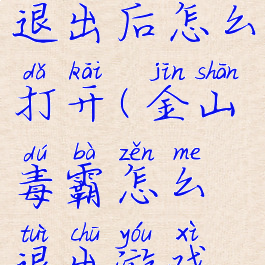 退出后怎么
dǎ kāi jīn shān
打开(金山
dú bà zěn me
毒霸怎么
tuì chū yóu xì
退出游戏